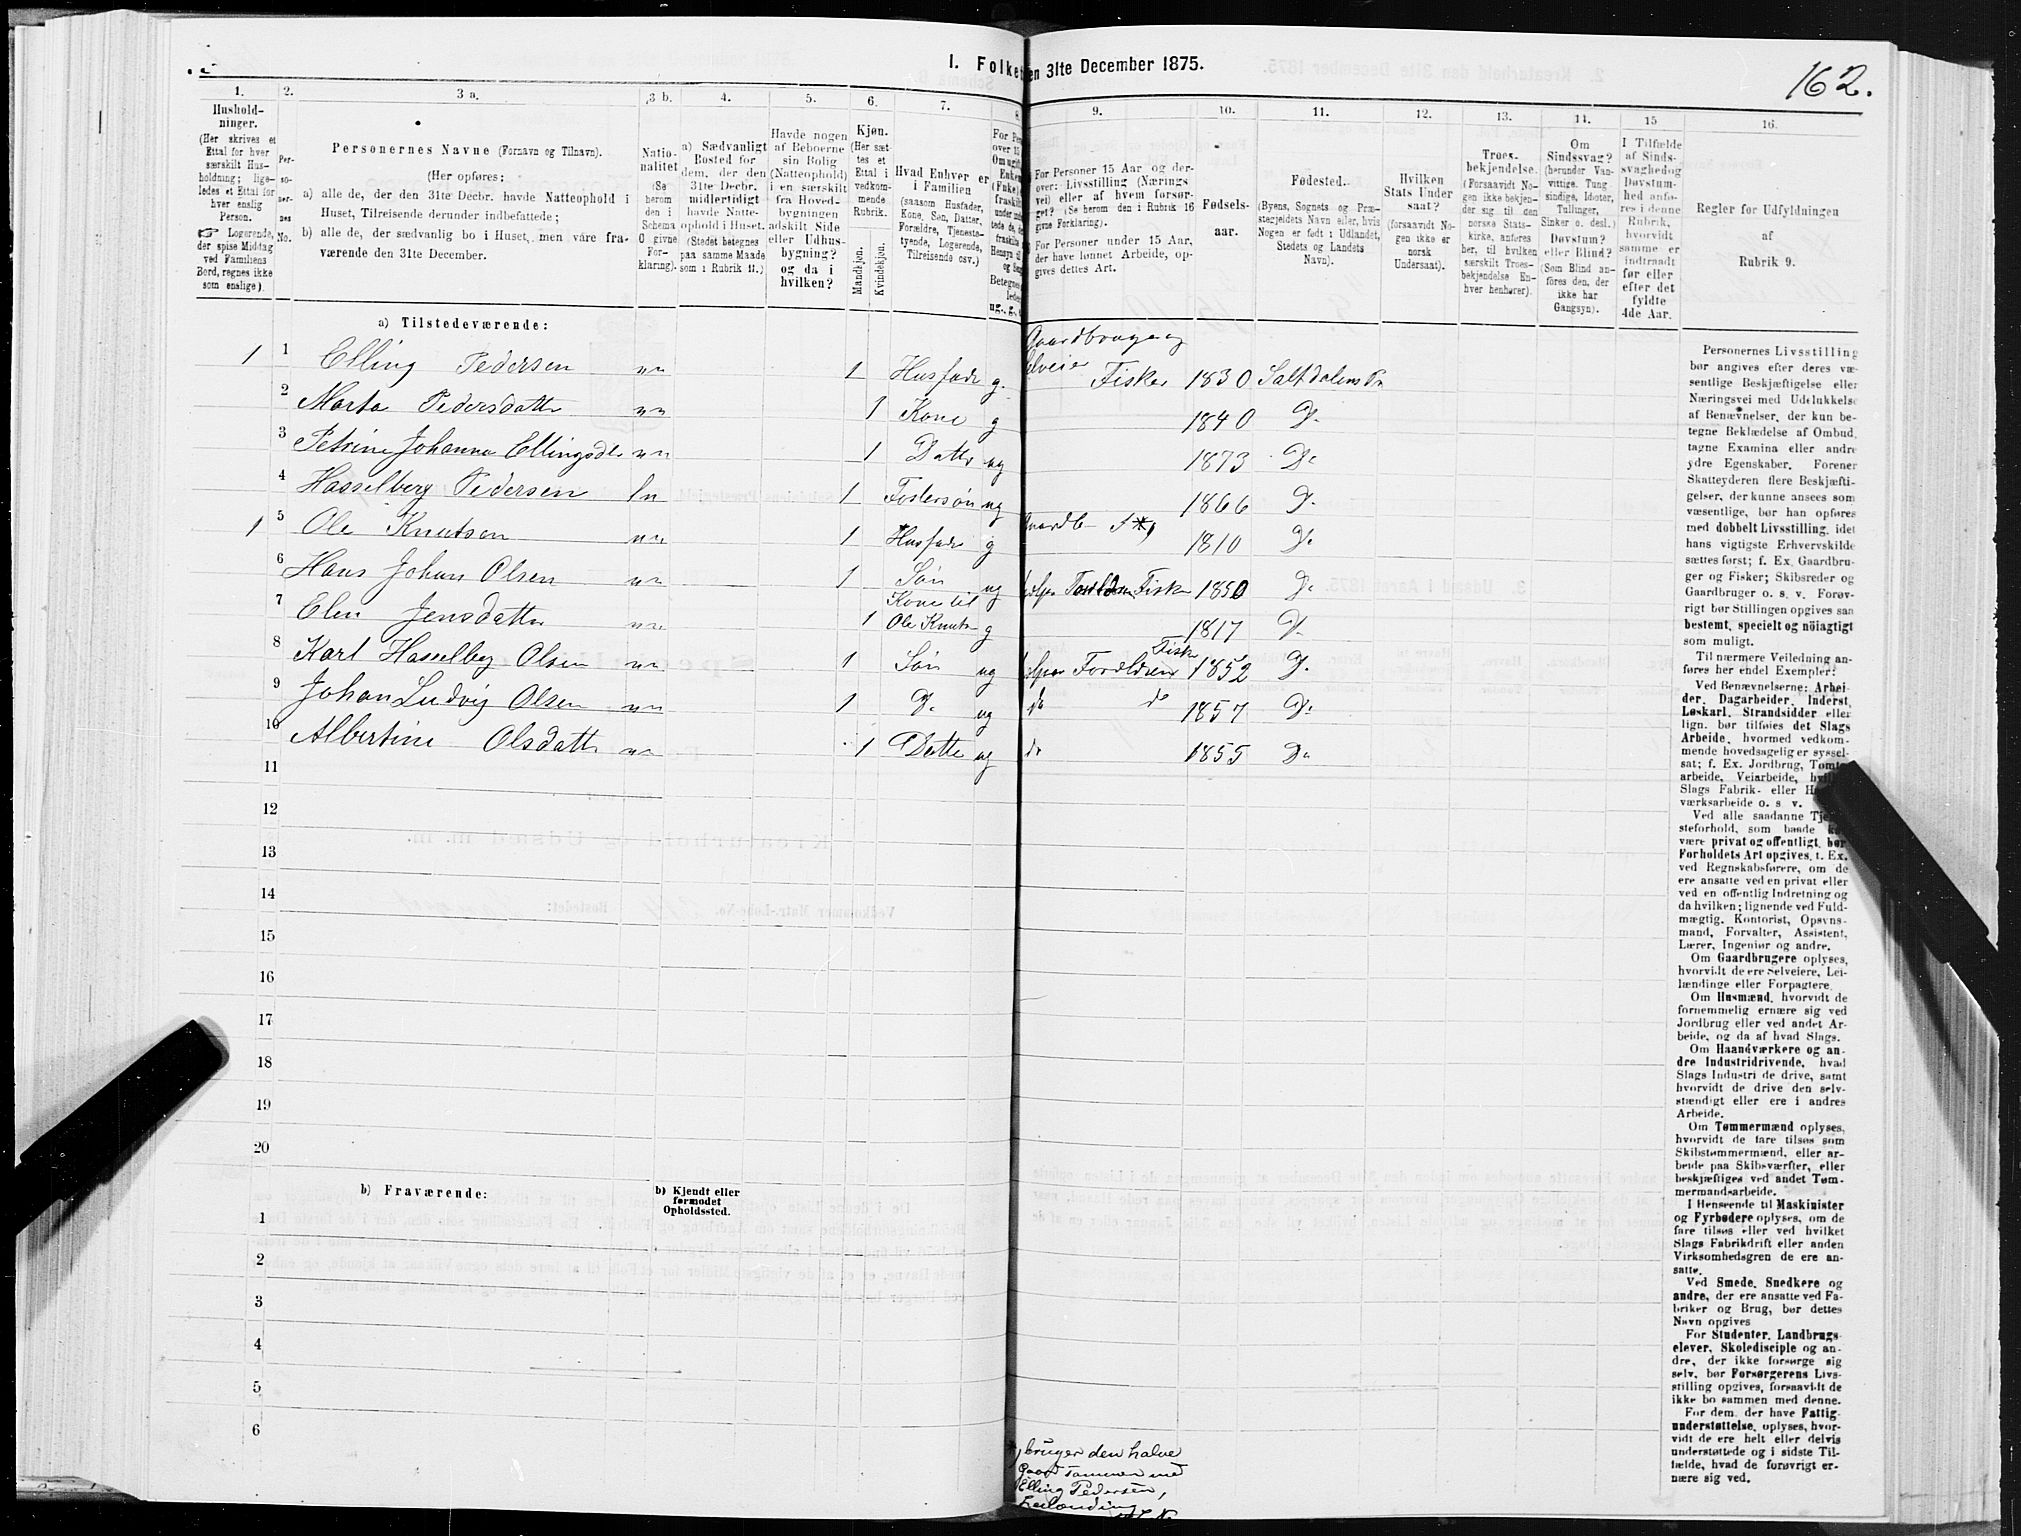 1. Folket
en 31te December 1875.
162.
1.
2.
3 a.
3 b.
4.
5.
6.
7.
8
9.
10.
11.
12.
13.
14.
15
16.
Hushold-
ninger.
(Her skrives et
Ettal for hver
særskilt Hus-
holdning; lige-
ledes et Ettal for
hver enslig
Person.
☞ Logerende,
der spise Middag
ved Familiens
Bord, regnes ikke
som enslige).
Per-
so-
ner-
nes
No.
Personernes Navne (Fornavn og Tilnavn).
(Her opføres:
a) alle de, der den 31te Decbr. havde Natteophold i
Huset, Tilreisende derunder indbefattede;
b) alle de, der sædvanlig bo i Huset, men våre fra-
værende den 31te December.
Natio-
nalitet
(Se
herom
den i
Schema
O givne
For-
klaring).
a) Sædvanligt
Bosted for
dem, der den
31te Decbr.
midlertidigt
havde Natte-
ophold i Huset.
(Stedet betegnes
paa samme Maade
som i Rubrik 11.)
Havde nogen
af Beboerne
sin Bolig
(Natteophold)
i en særskilt
fra Hoved-
bygningen
adskilt Side
eller Udhus-
bygning?
og da i
hvilken?
Kjøn.
(Her sæt-
tes et
Ettal i
vedkom-
mende
Rubrik.
Mandkjøn.
Kvindekjøn.
Hvad Enhver er
i Familien
(saasom Husfader,
Kone, Søn, Datter,
Forældre, Tjeneste-
tyende, Logerende,
Tilreisende osv.)
For Per
over 15
Om ugift
Enken
(Fnke)
fraskilt
Betegnes
ug., g.,
For Personer 15 Aar og der-
over: Livsstilling (Nærings
vei) eller af hvem forsør-
get? (Se herom den i Rubrik 16
givne Forklaring).
For Personer under 15 Aar,
der have lønnet Arbeide, op-
gives dettes Art.
Fødsels-
aar.
Fødested.
(Byens, Sognets og Præ-
stegjeldets Navn eller, hvis
Nogen er født i Udlandet,
Stedets og Landets
Navn).
Hvilken
Stats Under
saat?
(forsaavidt No-
gen ikke er
norsk
Undersaat).
Troes-
bekjendelse.
(Forsaavidt No-
gen ikke bekjen-
der sig til den
norske Stats-
kirke, anføres
her, til hvilken
særskilt Troes-
bekjendelse En-
hver henhører).
Om
Sindssvag?
(herunder Van-
vittige, Tung-
sindige, Idioter,
Tullinger,
Sinker o. desl.)
Døvstum?
eller Blind?
(Som Blind an-
føres den, der
ikke har
Gangsyn).
I Tilfælde
af Sinds-
svaghed og
Døvstum-
hed anfø-
res i denne
Rubrik,
hvorvidt
samme er
indtraadt
før eller
efter det
fyldte
4de Aar.
Regler før Udfyldningen
af
Rubrik 9.
a) Tilstedeværende:
1 1 Elling Pedersen nn 1 Husfader g. Gaardbruger og Selveier Fisker 1830 Saltdalens Pr
2 Marta Pedersdatter nn 1 Kone g 1840 Do
3 Petrine Johanna Ellingsdtr nn 1 Datter ug 1873 Do
4 Hasselberg Pedersen ln 1 Fostersøn ug 1866 Do
1 5 Ole Knutsen nn 1 Husfader g Gaardb *) 1810 Do
6 Hans Johan Olsen nn 1 Søn ug Fisker 1850 Do
7 Elen Jensdatter nn 1 Kone til Ole Knutsen g 1817 Do
8 Karl Hasselberg Olsen nn 1 Søn ug Forældrene Fisker 1852 Do
9 Johan Ludvig Olsen nn 1 Do ug do do 1857 Do
10 Albertine Olsdatter nn 1 Datter ug do 1855 Do
11
12
13
14
15
16
17
18
19
20
b) Fraværende:
b) Kjendt eller
formodet
Opholdssted.
1
2
3
4
5
6
*) bruger den halve
Gaard med
Elling Pedersen,
Leilænding
Personernes Livsstilling
bør angives efter deres væ-
sentlige Beskjæftigelse eller
Næringsvei med Udelukkelse
af Benævnelser, der kun be-
tegne Beklædelse af Ombud,
tagne Examina eller andre
ydre Egenskaber. Forener
Skatteyderen flere Beskjæfti-
gelser, der kunne ansees som
væsentlige, bør han opføres
med dobbelt Livsstilling, idet
hans vigtigste Erhvervskilde
sættes først; f. Ex. Gaardbru-
ger og Fisker; Skibsreder og
Gaardbruger o. s. v. Forøv-
rigt bør Stillingen opgives saa
bestemt, specielt og nöiagtigt
som muligt.
Til nærmere Veiledning an-
føres her endel Exempler:
Ved Benævnelserne: Arbei-
der, Dagarbeider, Inderst,
Løskarl, Strandsidder eller
lign. bør tilføies det Slags
Arbeide, hvormed vedkom-
mende hovedsagelig er syssel-
sat; f. Ex. Jordbrug, Tømte-
arbeide, Veiarbeide, hvilket
Slags Fabrik- eller Haand-
værksarbeide o. s v.
Ved alle saadanne Tjene-
steforhold, som baade kan
være privat og offentligt, bør
Forholdets Art opgives, t. Ex.
ved Regnskabsførere, om de
ere ansatte ved en privat eller
ved en offentlig Indretning og
da hvilken; lignende ved Fuld-
mægtig, Kontorist, Opsyns-
mand, Forvalter, Assistent,
Lærer, Ingeniør og andre.
Om Gaardbrugere oplyses,
hvorvidt de ere Selveiere, Lei-
lændinge eller Forpagtere.
Om Husmænd, hvorvidt de
fornemmelig ernære sig ved
Jordbrug eller ved andet Ar-
beide, og da af hvad Slags.
Om Haandværkere og an-
dre Industridrivende, hvad
Slags Industri de drive, samt
hvorvidt de drive den selv-
stændigt eller ere i andres
Arbeide.
Om Tømmermænd oplyses,
hvorvidt de fare tilsøs som
Skibstømmermænd, eller ar-
beide paa Skibsværfter, eller
beskjæftiges ved andet Tøm-
mermandsarbeide.
I Henseende til Maskinister
og Fyrbødere oplyses, om de
fare tilsøs eller ved hvilket
Slags Fabrikdrift eller anden
Virksomhedsgren de ere an-
satte.
Ved Smede, Snedkere og
andre, der ere ansatte ved Fa-
briker og Brug, bør dettes
Navn opgives
For Studenter, Landbrugs-
elever, Skoledisciple og an-
dre, der ikke forsørge sig
selv, bør Forsørgerens Livs-
stilling opgives, forsaavidt de
ikke bo sammen med denne.
For dem, der have Fattig-
understøttelse, oplyses, hvor-
vidt de ere helt eller delvis
understøttede og i sidste Til-
fælde, hvad de forøvrigt er-
nære sig ved.